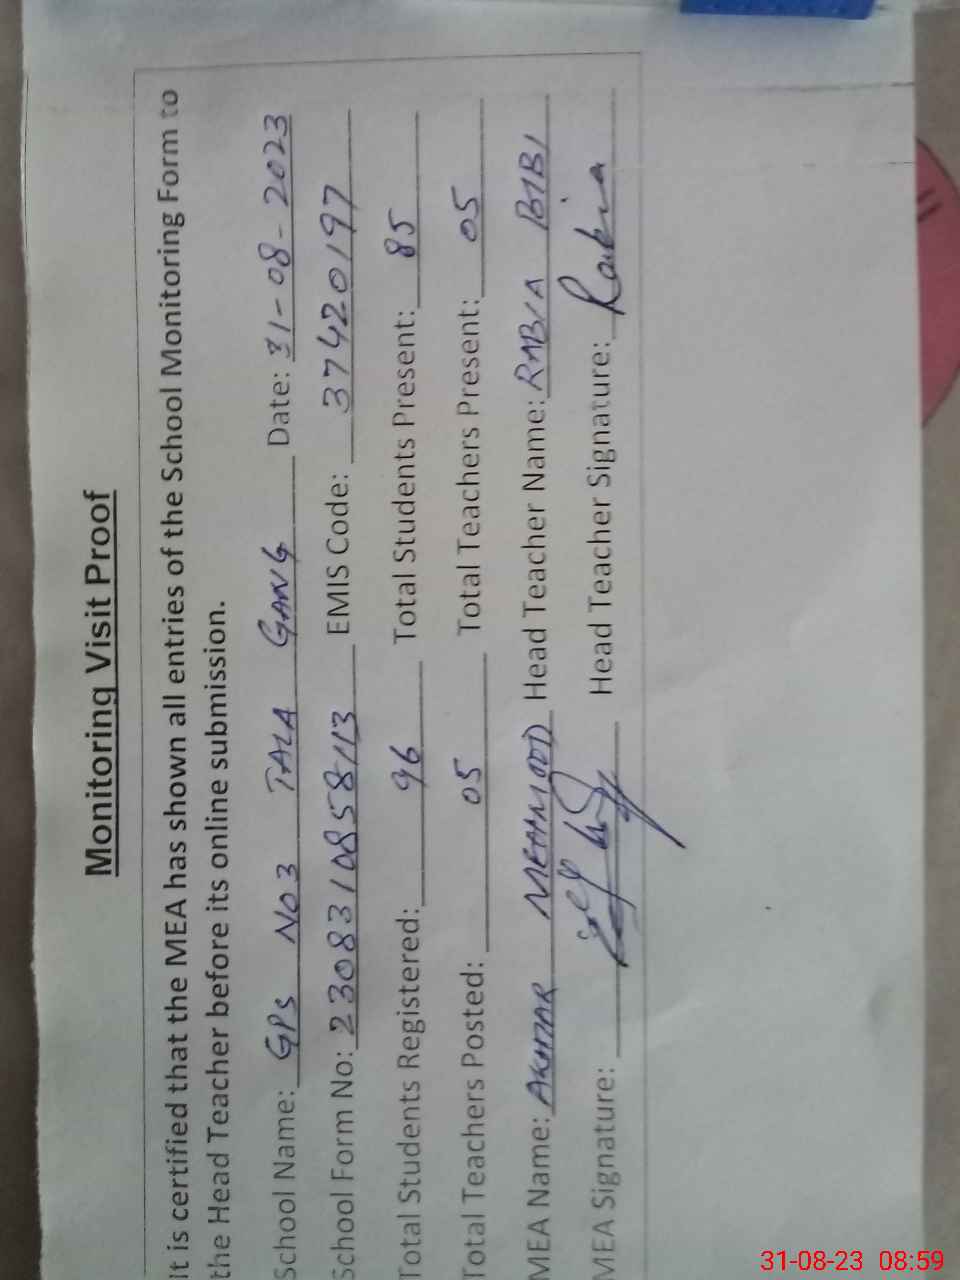 Monitoring Visit Proof
It is certified that the MEA has shown all entries of the School Monitoring Form to
the Head Teacher before its online submission.
School Name: GPS NO3 TALA GANG Date: 31-08-2023
School Form No: 2308310858113 EMIS Code: 37420197
Total Students Registered: 96 Total Students Present: 85
Total Teachers Posted: 05 Total Teachers Present: 05
MEA Name: AKHTAR MEHMOOD Head Teacher Name: RABIA BIBI
MEA Signature: Head Teacher Signature: Rabia
31-08-23 08:59